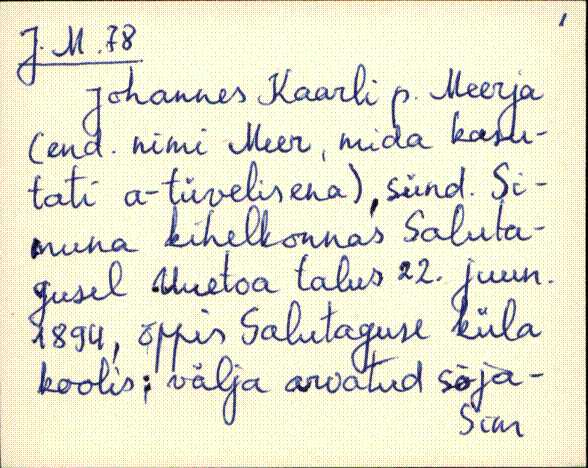 J. M. 78
Johannes Kaarli p. Meerja
(end. nimi Meer, mida kasu-
tati a-tüvelisena), sünd. Si-
muna kihelkonnas Saluta-
gusel Uuetoa talus 22. juun.
1894, õppis Salutaguse küla
koolis; välja arvatud sõja-
Sim